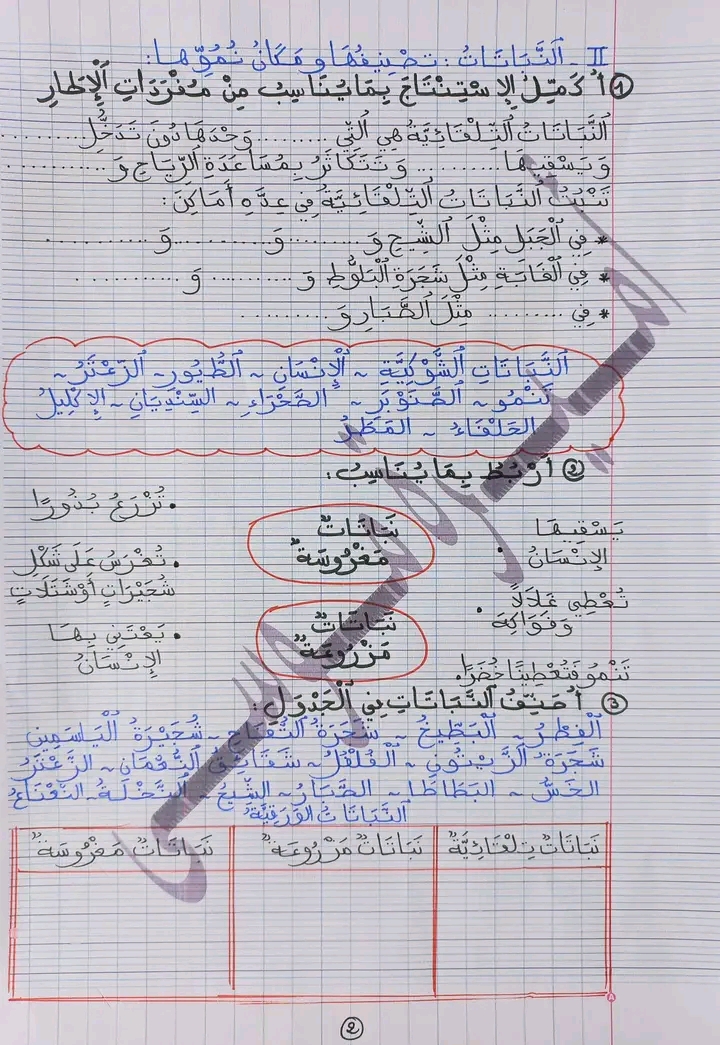 II - اَلنَّبَاتَاتُ : تَصْنِيفُهَا وَ مَكَانُ نُمُوِّهَا :
① أُكَمِّلُ الِاسْتِنْتَاجَ بِمَا يُنَاسِبُ مِنْ مُفْرَدَاتِ الْإِطَارِ
اَلنَّبَاتَاتُ التِّلْقَائِيَّةُ هِيَ الَّتِي .......... وَحْدَهَا دُونَ تَدَخُّلِ ..........
وَ يَسْقِيهَا .......... وَ تَتَكَاثَرُ بِمُسَاعَدَةِ الرِّيَاحِ وَ ..........
تَنْبُتُ النَّبَاتَاتُ التِّلْقَائِيَّةُ فِي عِدَّةِ أَمَاكِنَ :
* فِي الْجَبَلِ مِثْلَ الشِّيحِ وَ .......... وَ .......... وَ ..........
* فِي الْغَابَةِ مِثْلَ شَجَرَةِ الْبَلُّوطِ وَ .......... وَ ..........
* فِي .......... مِثْلَ الصَّبَّارِ وَ ..........
اَلنَّبَاتَاتِ الشَّوْكِيَّةِ ~ الْإِنْسَانِ ~ الطُّيُورِ ~ الزَّعْتَرُ ~
تَنْمُو ~ الصَّنَوْبَرِ ~ الصَّحْرَاءِ ~ السِّنْدِيَانِ ~ الإِكْلِيلُ
الحَلْفَاءُ ~ المَطَرُ
② أَرْبُطُ بِمَا يُنَاسِبُ :
يَسْقِيهَا
الإِنْسَانُ •
تُعْطِي غِلَالًا
وَ فَوَاكِهَ •
تَنْمُو فَتُعْطِينَا خُضَرًا •
نَبَاتَاتٌ
مَغْرُوسَةٌ
نَبَاتَاتٌ
مَزْرُوعَةٌ
• تُزْرَعُ بُذُورًا
• تُغْرَسُ عَلَى شَكْلِ
شُجَيْرَاتٍ أَوْ شَتَلَاتٍ
• يَعْتَنِي بِهَا
الإِنْسَانُ
③ أُصَنِّفُ النَّبَاتَاتِ فِي الْجَدْوَلِ :
اَلْفِطْرُ ~ الْبَطِّيخُ ~ شَجَرَةُ التُّفَّاحِ ~ شُجَيْرَةُ الْيَاسَمِينِ
شَجَرَةُ الزَّيْتُونِ ~ الْفُلْفُلُ ~ شَقَائِقُ النُّعْمَانِ ~ الزَّعْتَرُ
الخَسُّ ~ البَطَاطَا ~ الصَّبَّارُ ~ الشِّيحُ ~ النَّخْلَةُ ~ النَّعْنَاعُ
النَّبَاتَاتُ الوَرَقِيَّةُ
نَبَاتَاتٌ تِلْقَائِيَّةٌ
نَبَاتَاتٌ مَزْرُوعَةٌ
نَبَاتَاتٌ مَغْرُوسَةٌ
②